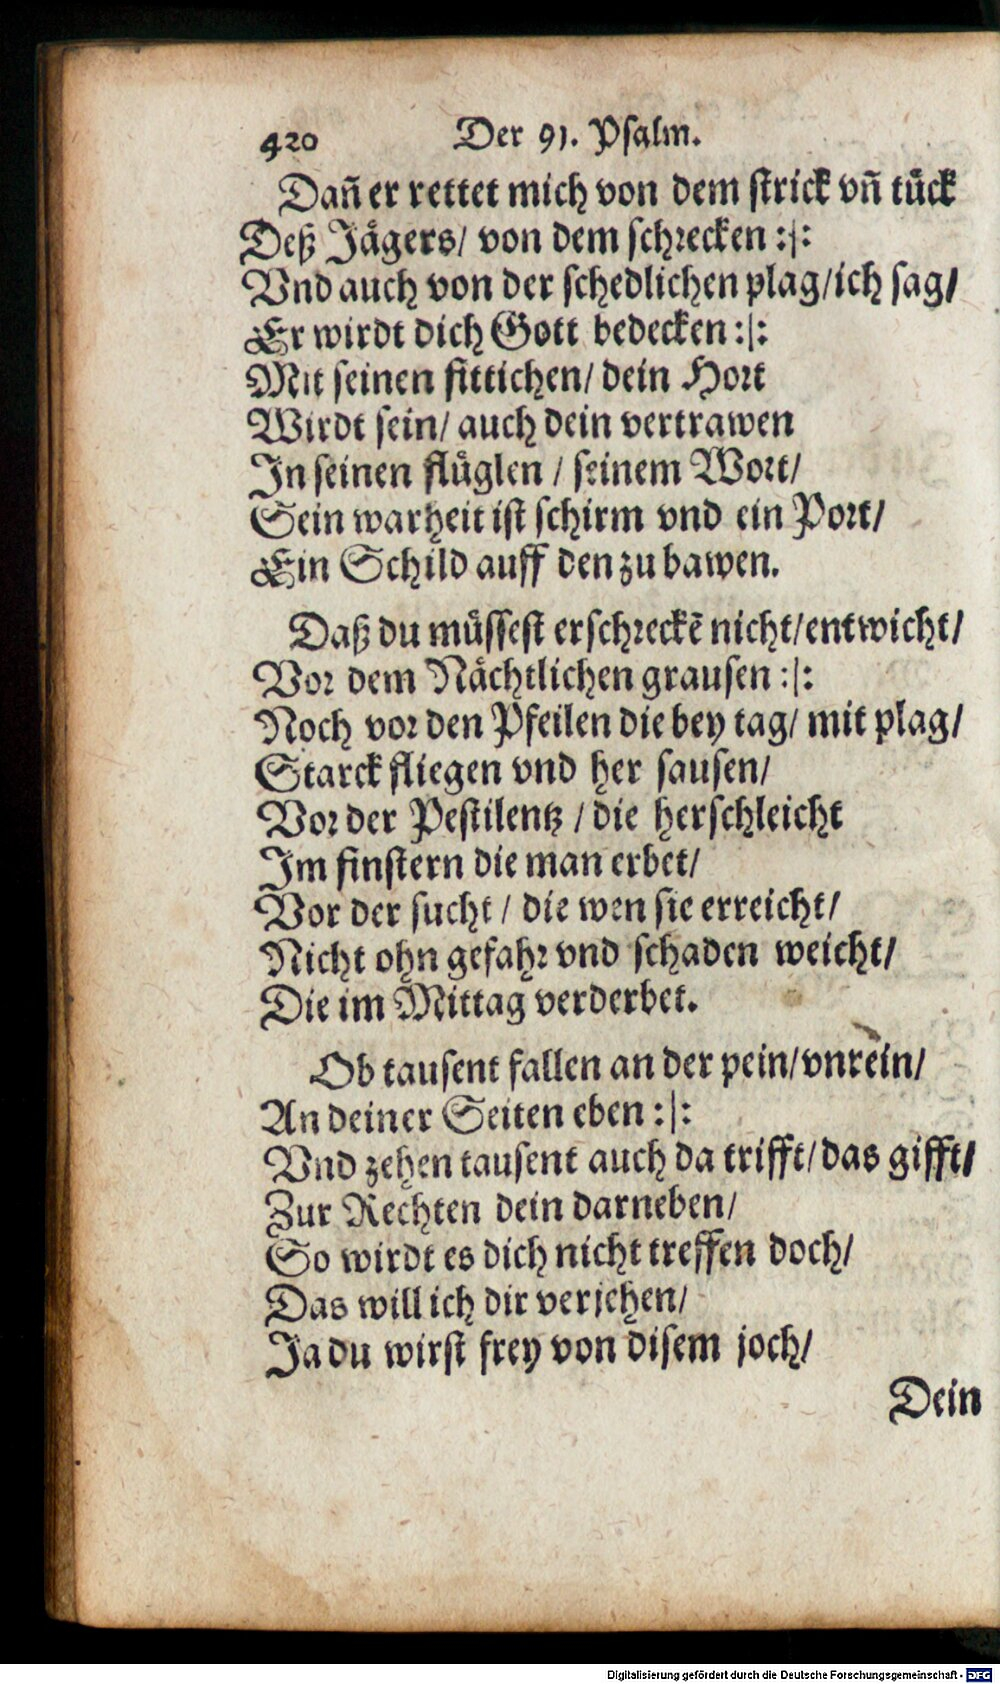 420 Der 91. Psalm.
Dañ er rettet mich von dem strick vñ tück
Deß Jägers/ von dem schrecken :|:
Vnd auch von der schedlichen plag/ich sag/
Er wirdt dich Gott bedecken :|:
Mit seinen fittichen/ dein Hort
Wirdt sein/ auch dein vertrawen
In seinen flüglen / seinem Wort/
Sein warheit ist schirm vnd ein Port/
Ein Schild auff den zu bawen.
Daß du müssest erschreckē nicht/entwicht/
Vor dem Nächtlichen grausen :|:
Noch vor den Pfeilen die bey tag/ mit plag/
Starck fliegen vnd her sausen/
Vor der Pestilentz / die herschleicht
Im finstern die man erbet/
Vor der sucht / die wen sie erreicht/
Nicht ohn gefahr vnd schaden weicht/
Die im Mittag verderbet.
Ob tausent fallen an der pein/vnrein/
An deiner Seiten eben :|:
Vnd zehen tausent auch da trifft/das gifft/
Zur Rechten dein darneben/
So wirdt es dich nicht treffen doch/
Das will ich dir verjehen/
Ja du wirst frey von disem joch/
Dein
Digitalisierung gefördert durch die Deutsche Forschungsgemeinschaft - DFG